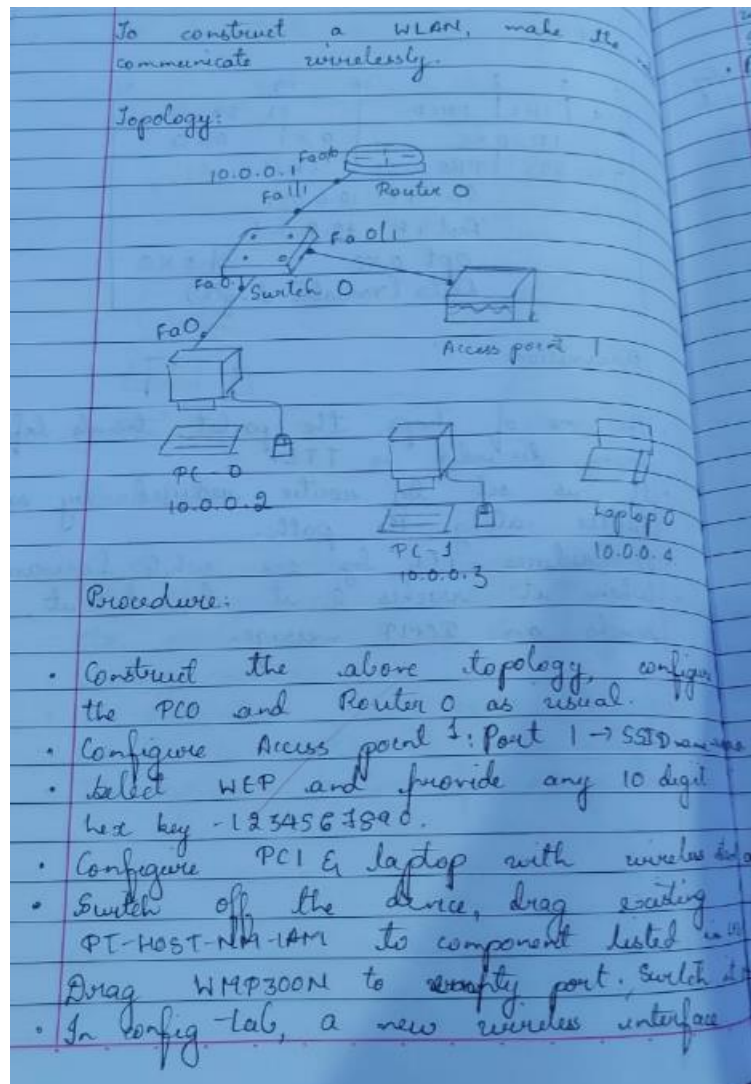 To construct a WLAN, make the
communicate wirelessly.
Topology:
10.0.0.1 Fa0/0
Fa1/1 Router 0
Fa0/1
Fa0/1 Switch 0
Fa0
Access point 1
PC-0
10.0.0.2
PC-1
10.0.0.3
Laptop 0
10.0.0.4
Procedure:
• Construct the above topology, configure
the PC0 and Router 0 as usual.
• Configure Access point 1: Port 1 → SSID
• Select WEP and provide any 10 digit
hex key - 1234567890.
• Configure PC1 & laptop with wireless
• Switch off the device, drag existing
PT-HOST-NM-1AM to component listed in
Drag WMP300N to empty port. Switch
• In config tab, a new wireless interface